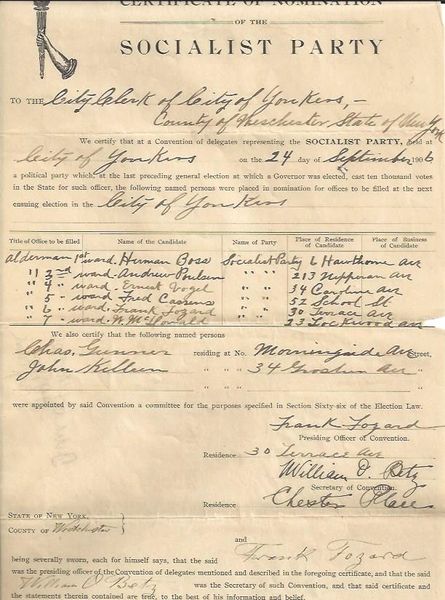 CERTIFICATE OF NOMINATION
OF THE
SOCIALIST PARTY
TO THE City Clerk of City of Yonkers, -
County of Westchester, State of New York
We certify that at a Convention of delegates representing the SOCIALIST PARTY, held at
City of Yonkers on the 24 day of September 1906
a political party which, at the last preceding general election at which a Governor was elected, cast ten thousand votes
in the State for such officer, the following named persons were placed in nomination for offices to be filled at the next
ensuing election in the City of Yonkers
Title of Office to be filled Name of the Candidate Name of Party Place of Residence of Candidate Place of Business of Candidate
alderman 1st ward. Herman Boss Socialist Party 6 Hawthorne Av
" 3rd ward. Andrew Poulsen " " 213 Nepperan Av
" 4 " ward. Ernest Vogel " " 34 Caroline Av
" 5 " ward. Fred Cassens " " 52 School St
" 6 " ward. Frank Fozard " " 30 Terrace Av
" 7 - ward. McDonald " " 23 Lockwood av
We also certify that the following named persons
Chas. Gunner residing at No. Morningside Av Street,
John Killeen " " " 34 Av "
were appointed by said Convention a committee for the purposes specified in Section Sixty-six of the Election Law.
Frank Fozard
Presiding Officer of Convention.
Residence 30 Terrace Av
William O. Betz
Secretary of Convention.
Residence Chester Place
STATE OF NEW YORK,
COUNTY OF Westchester
and
Frank Fozard
being severally sworn, each for himself says, that the said
was the presiding officer of the Convention of delegates mentioned and described in the foregoing certificate, and that the said
William O Betz was the Secretary of such Convention, and that said certificate and
the statements therein contained are true, to the best of his information and belief.